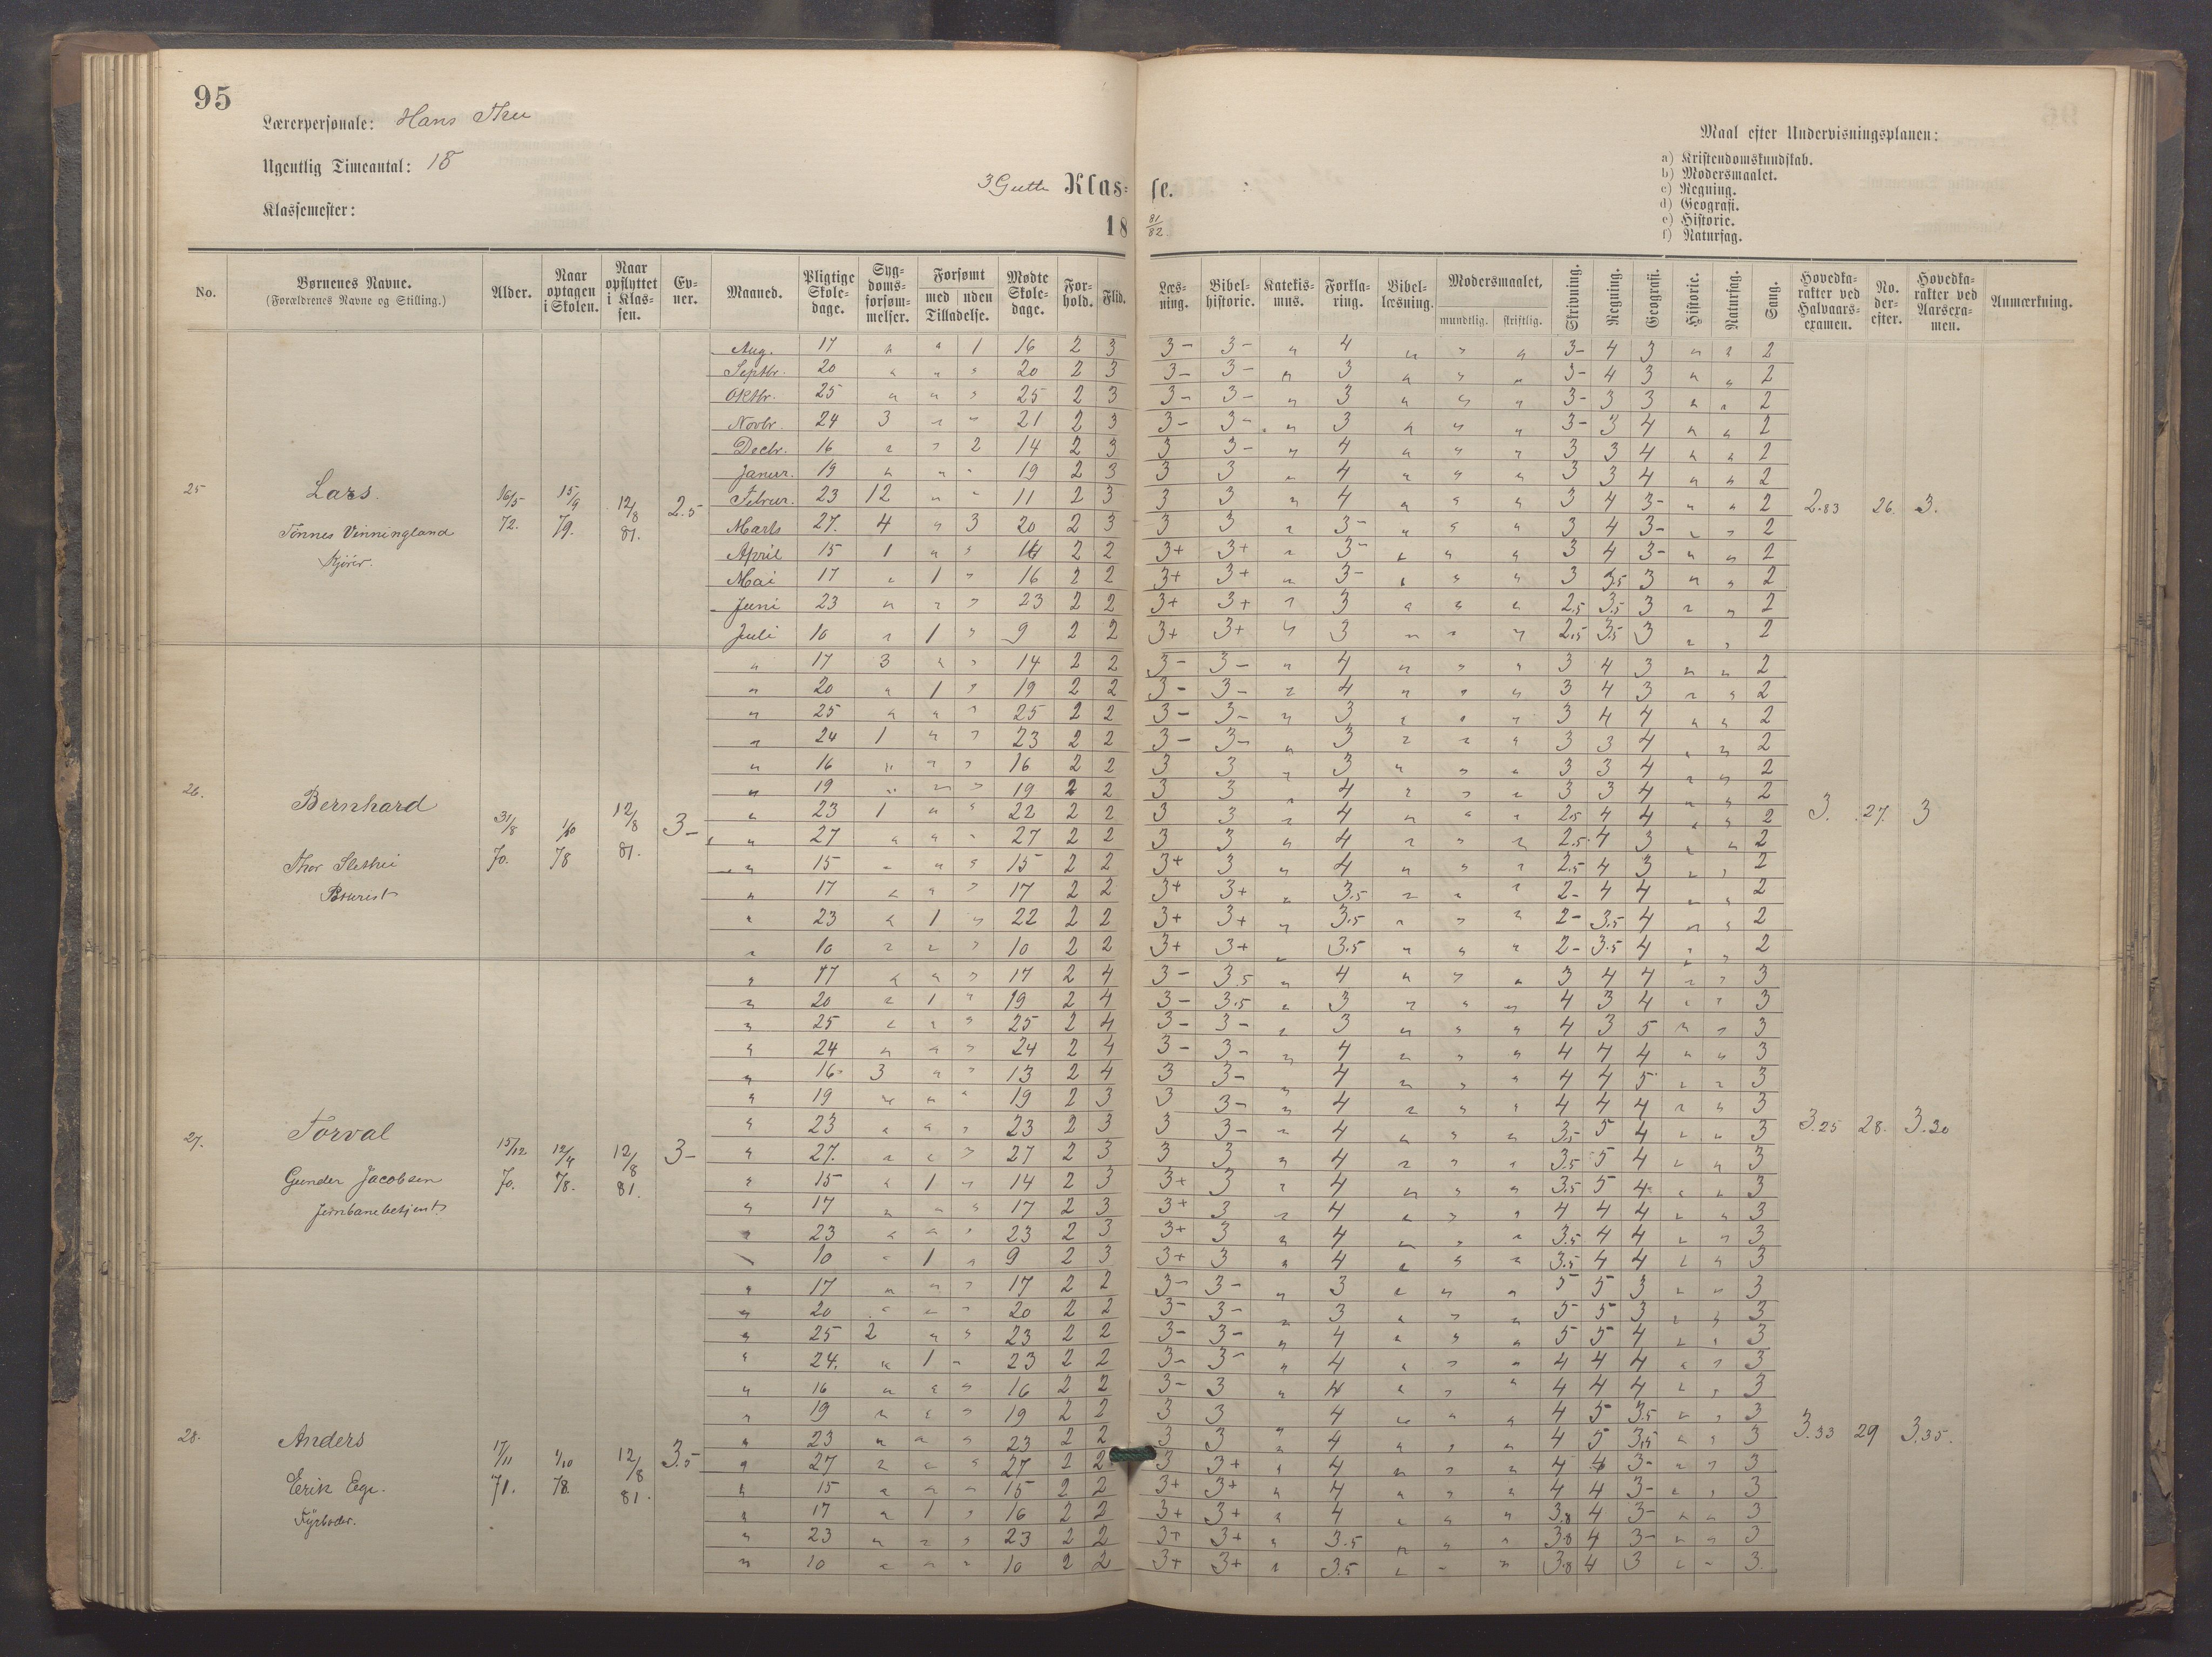 95
Lærerpersonale: Hans Thu
Ugentlig Timeantal: 18
Klassemester:
3 Gutte Klasse.
18 81/82.
Maal efter Undervisningsplanen:
a) Kristendomskundskab.
b) Modersmaalet.
c) Regning.
d) Geografi.
e) Historie.
f) Naturfag.
No. Børnenes Navne. (Forældrenes Navne og Stilling.) Alder. Naar optagen i Skolen. Naar opflyttet i Klassen. Evner. Maaned. Pligtige Skoledage. Sygdomsforsømmelser. Forsømt med uden Tilladelse. Mødte Skoledage. Forhold. Flid. Læsning. Bibelhistorie. Katekismus. Forklaring. Bibellæsning. Modersmaalet, mundtlig. skriftlig. Skrivning. Regning. Geografi. Historie. Naturfag. Sang. Hovedkarakter ved Halvaarsexamen. No. derefter. Hovedkarakter ved Aarsexamen. Anmærkning.
Aug. 17 " " 1 16 2 3 3- 3- " 4 " " " 3- 4 3 " " 2
Septbr. 20 " " " 20 2 3 3- 3- " 3 " " " 3- 4 3 " " 2
Oktbr. 25 " " " 25 2 3 3- 3- " 3 " " " 3- 3 3 " " 2
Novbr. 24 3 " " 21 2 3 3- 3- " 3 " " " 3- 3 4 " " 2
Decbr. 16 " " 2 14 2 3 3 3- " 4 " " " 3 3 4 " " 2
Januar. 19 " " " 19 2 3 3 3 " 4 " " " 3 3 4 " " 2
25 Lars. 16/5 72. 15/9 79. 12/8 81. 2.5 Februar. 23 12 " " 11 2 3 3 3 " 4 " " " 3 4 3- " " 2 2.83 26. 3.
Tønnes Vinningland Marts 27. 4 " 3 20 2 3 3 3 " 3- " " " 3 4 3- " " 2
Kjører. April 15 1 " " 14 2 2 3+ 3+ " 3- " " " 3 4 3- " " 2
Mai 17 " 1 " 16 2 2 3+ 3+ " 3- " " " 3 3.5 3 " " 2
Juni 23 " " " 23 2 2 3+ 3+ " 3 " " " 2.5 3.5 3 " " 2
Juli 10 " 1 " 9 2 2 3+ 3+ " 3 " " " 2.5 3.5 3 " " 2
" 17 3 " " 14 2 2 3- 3- " 4 " " " 3 4 3 " " 2
" 20 " 1 " 19 2 2 3- 3- " 4 " " " 3 4 3 " " 2
" 25 " " " 25 2 2 3- 3- " 3 " " " 3 4 4 " " 2
" 24 1 " " 23 2 2 3- 3- " 3 " " " 3 3 4 " " 2
" 16 " " " 16 2 2 3 3 " 3 " " " 3 3 4 " " 2
" 19 " " " 19 2 2 3 3 " 4 " " " 3 3 4 " " 2
26. Bernhard 31/8 70. 1/10 78 12/8 81. 3- " 23 1 " " 22 2 2 3 3 " 4 " " " 2.5 4 4 " " 2 3. 27. 3
" 27 " " " 27 2 2 3 3 " 4 " " " 2.5 4 3 " " 2
Thor " 15 " " " 15 2 2 3+ 3 " 4 " " " 2.5 4 3 " " 2
" 17 " " " 17 2 2 3+ 3+ " 3.5 " " " 2- 4 4 " " 2
" 23 " 1 " 22 2 2 3+ 3+ " 3.5 " " " 2- 3.5 4 " " 2
" 10 " " " 10 2 2 3+ 3+ " 3.5 " " " 2- 3.5 4 " " 2
" 17 " " " 17 2 4 3- 3.5 " 4 " " " 3 4 4 " " 3
" 20 " 1 " 19 2 4 3- 3.5 " 3 " " " 4 3 4 " " 3
" 25 " " " 25 2 4 3- 3- " 3 " " " 4 3 5 " " 3
" 24 " " " 24 2 4 3- 3- " 4 " " " 4 4 4 " " 3
" 16 3 " " 13 2 4 3 3- " 4 " " " 4 4 5 " " 3
" 19 " " " 19 2 3 3 3- " 4 " " " 4 4 4 " " 3
27. Torval 15/12 70. 12/4 78. 12/8 81. 3- " 23 " " " 23 2 3 3 3- " 4 " " " 3.5 5 4 " " 3 3.25 28. 3.20
" 27. " " " 27 2 3 3 3 " 4 " " " 3.5 5 4 " " 3
Gunder Jacobsen " 15 " 1 " 14 2 3 3+ 3 " 4 " " " 3.5 5 4 " " 3
Jernbanebetjent " 17 " " " 17 2 3 3+ 3 " 4 " " " 4 4 4 " " 3
" 23 " " " 23 2 3 3+ 3 " 4 " " " 3.5 4 4 " " 3
" 10 " 1 " 9 2 3 3+ 3 " 4 " " " 3.5 4 4 " " 3
" 17 " " " 17 2 2 3- 3- " 3 " " " 5 5 3 " " 3
" 20 " " " 20 2 2 3- 3- " 3 " " " 5 5 3 " " 3
" 25 2 " " 23 2 2 3- 3- " 4 " " " 5 5 4 " " 3
" 24. " 1 " 23 2 2 3- 3- " 4 " " " 4 4 4 " " 3
" 16 " " " 16 2 2 3- 3 " 4 " " " 4 4 4 " " 3
" 19 " " " 19 2 2 3 3 4 " " " 4 5 3.5 " " 3
28. Anders 17/11 71. 1/10 78. 12/8 81. 3.5 " 23 " " " 23 2 2 3 3 " 4 " " " 4 5 3.5 " " 3 3.33 29 3.35.
" 27 " " " 27 2 2 3 3+ " 4 " " " 4 4 3- " " 3
Erik Ege. " 15 " " " 15 2 2 3+ 3+ " 4 " " " 4 4 3- " " 3
Fyrbøder. " 17 " 1 " 16 2 2 3+ 3+ " 4 " " " 3.8 4 3- " " 3
" 23 " " " 23 2 2 3+ 3+ " 3.5 " " " 3.8 4 3- " " 3
" 10 " " " 10 2 2 3+ 3+ " 3.5 " " " 3.8 4 3 " " 3